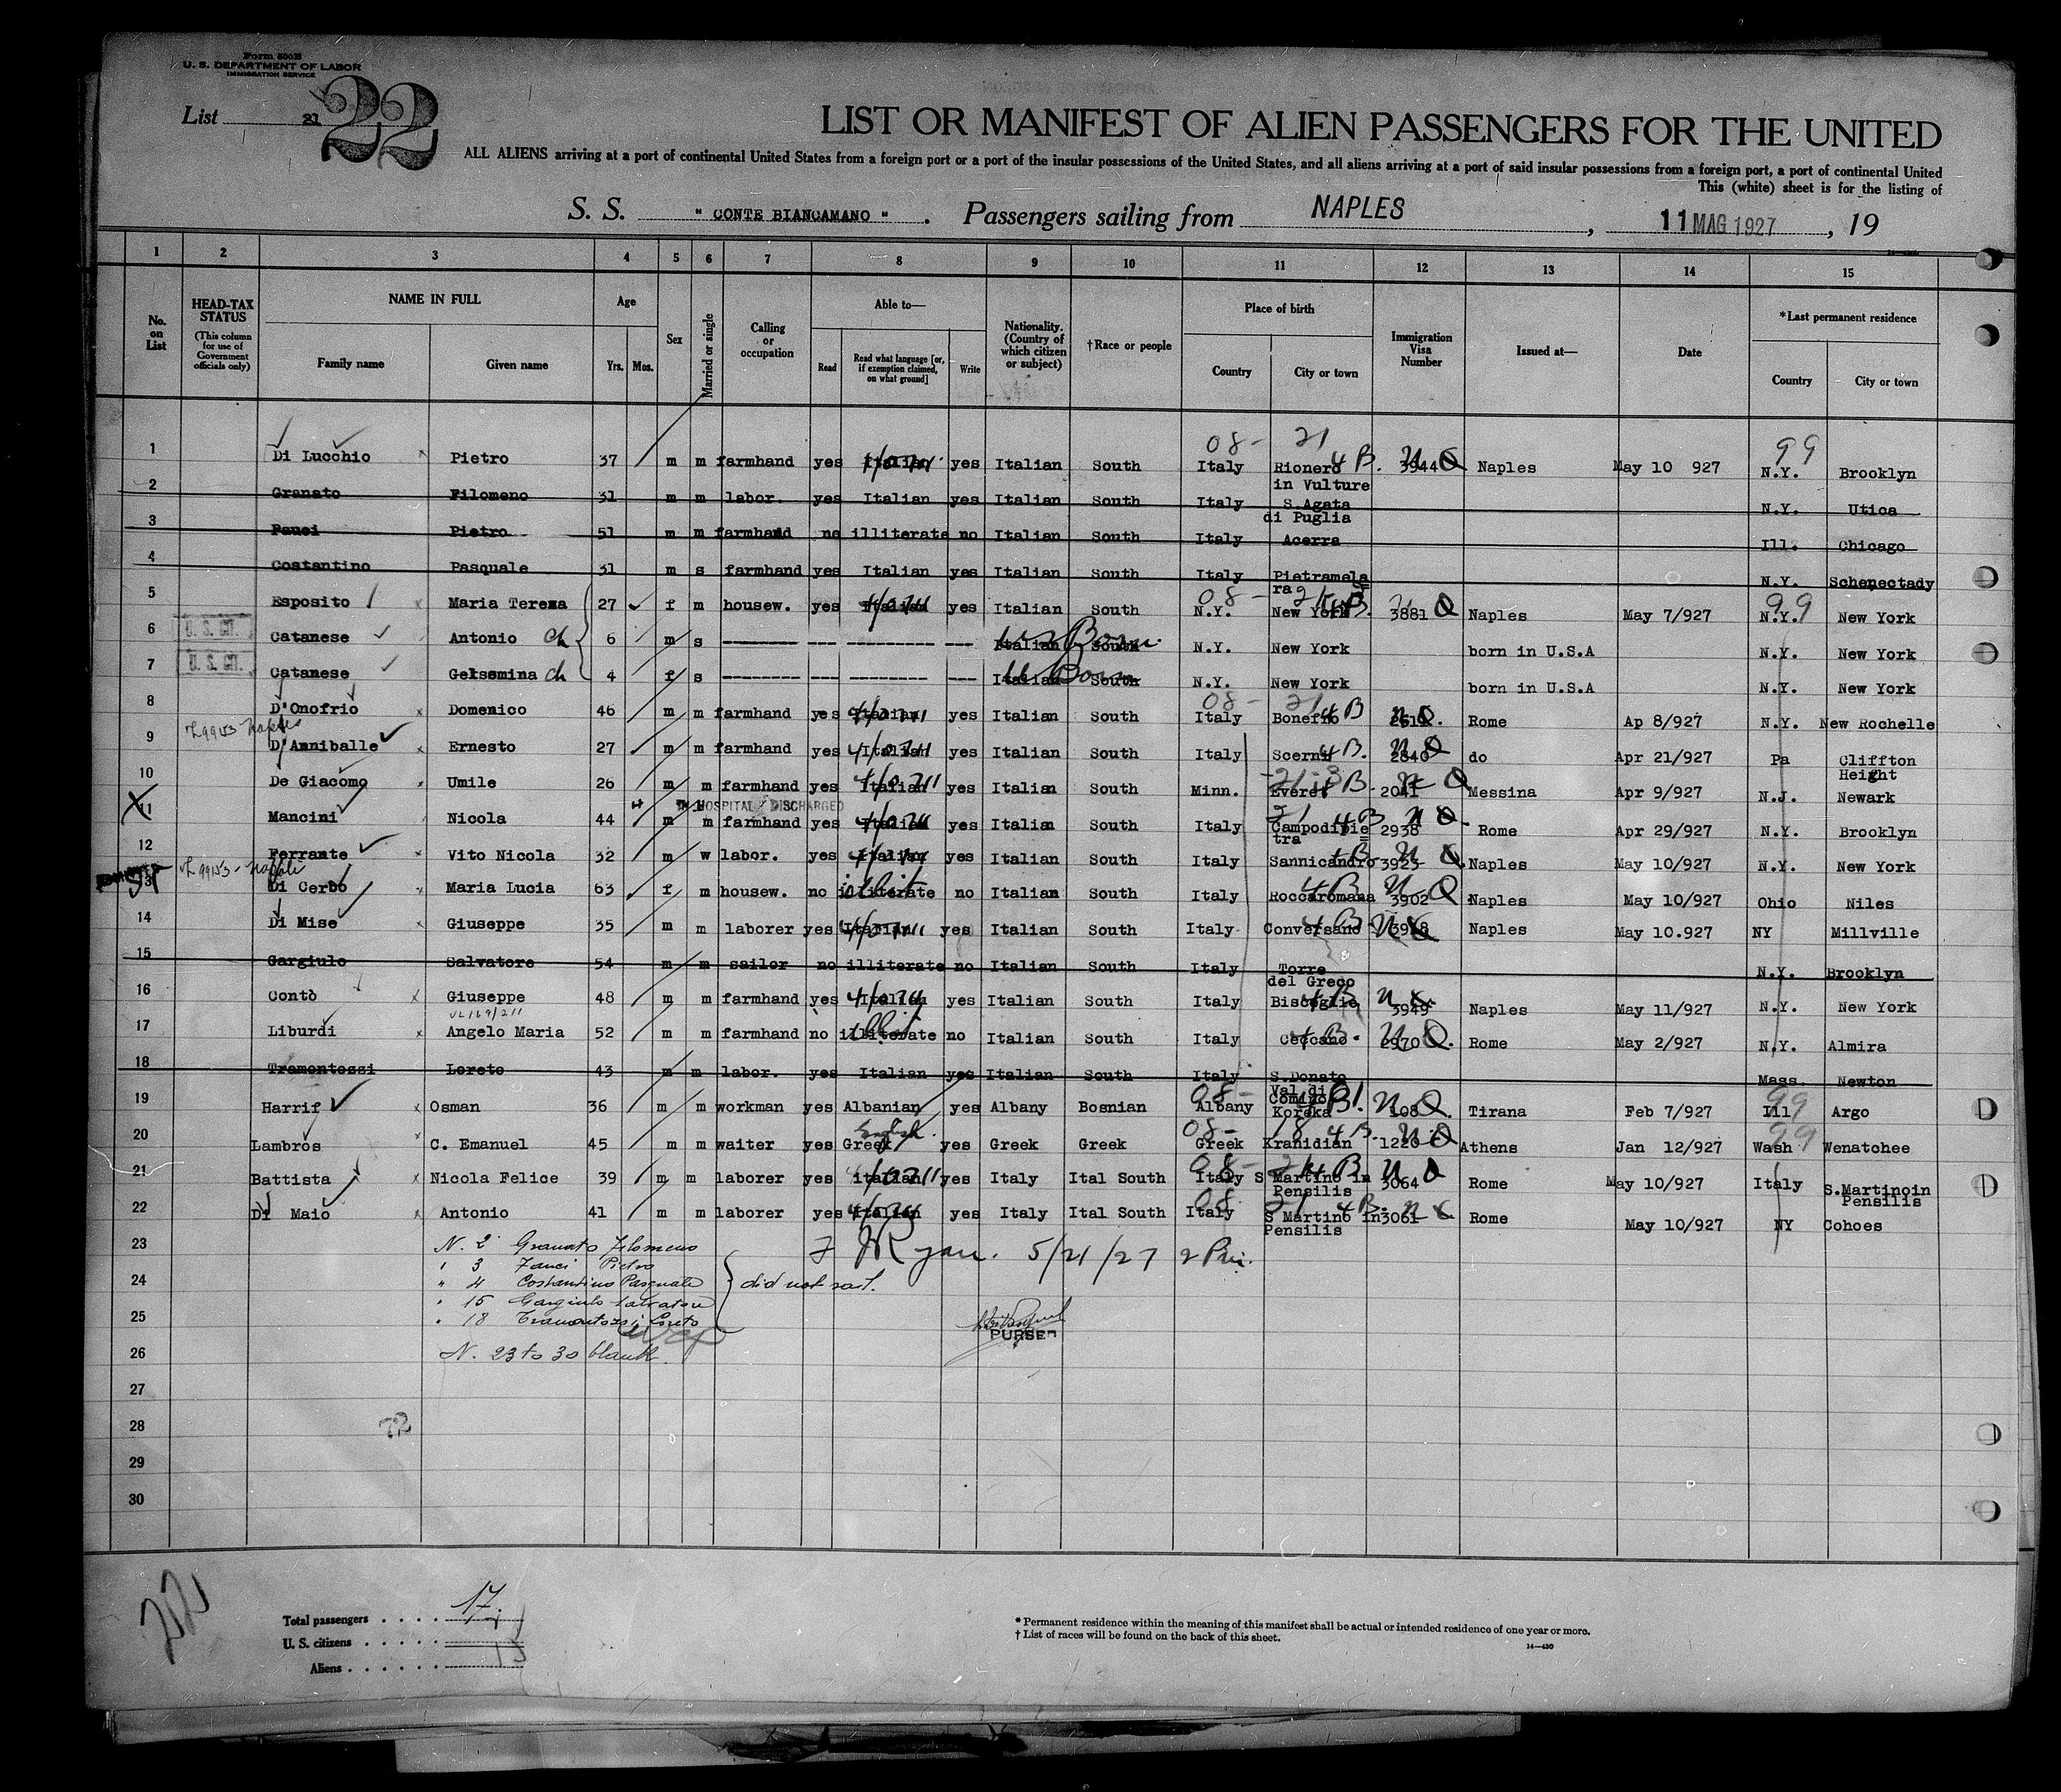 Form 500B
U. S. DEPARTMENT OF LABOR
IMMIGRATION SERVICE
List 21 22
LIST OR MANIFEST OF ALIEN PASSENGERS FOR THE UNITED
ALL ALIENS arriving at a port of continental United States from a foreign port or a port of the insular possessions of the United States, and all aliens arriving at a port of said insular possessions from a foreign port, a port of continental United
This (white) sheet is for the listing of
S. S. " CONTE BIANCAMANO " . Passengers sailing from NAPLES , 11 MAG 1927 , 19
1 2 3 4 5 6 7 8 9 10 11 12 13 14 15
No. on List
HEAD-TAX STATUS
(This column for use of Government officials only)
NAME IN FULL
Family name Given name
Age
Yrs. Mos.
Sex
Married or single
Calling or occupation
Able to—
Read Read what language [or, if exemption claimed, on what ground] Write
Nationality. (Country of which citizen or subject)
†Race or people
Place of birth
Country City or town
Immigration Visa Number
Issued at—
Date
*Last permanent residence
Country City or town
08- 21 99
1 Di Lucchio Pietro 37 m m farmhand yes Italian yes Italian South Italy Rionero in Vulture 4 B. 3944 Naples May 10 927 N.Y. Brooklyn
2 Granato Filomeno 31 m m labor. yes Italian yes Italian South Italy S.Agata di Puglia N.Y. Utica
3 Pietro 51 m m farmhand no illiterate no Italian South Italy Acerra Ill. Chicago
4 Costantino Pasquale 31 m s farmhand yes Italian yes Italian South Italy Pietramela= ra N.Y. Schenectady
5 Esposito Maria Tereza 27 f m housew. yes Italian yes Italian South N.Y. New York 3881 Naples May 7/927 N.Y. New York
6 U. S. CIT. Catanese Antonio ch 6 m s Italian South US Born N.Y. New York born in U.S.A N.Y. New York
7 U. S. CIT. Catanese Gelsomina ch 4 f s Italian South Born N.Y. New York born in U.S.A N.Y. New York
8 D'Onofrio Domenico 46 m m farmhand yes Italian yes Italian South Italy Bonefro 4 B Rome Ap 8/927 N.Y. New Rochelle
9 D'Anniballe Ernesto 27 m m farmhand yes Italian yes Italian South Italy Scerni 4 B. 2840 do Apr 21/927 Pa Cliffton Height
10 De Giacomo Umile 26 m m farmhand yes Italian yes Italian South Minn. Everet 2041 Messina Apr 9/927 N.J. Newark
IN HOSPITAL / DISCHARGED
11 Mancini Nicola 44 m m farmhand yes Italian yes Italian South Italy Campodipie= tra 2938 Rome Apr 29/927 N.Y. Brooklyn
12 Ferrante Vito Nicola 32 m w labor. yes Italian yes Italian South Italy Sannicandro 3923 Naples May 10/927 N.Y. New York
13 Di Cerbo Maria Lucia 63 f m housew. no illiterate no Italian South Italy Roccaromana 3902 Naples May 10/927 Ohio Niles
14 Di Mise Giuseppe 35 m m laborer yes Italian yes Italian South Italy Conversano Naples May 10.927 NY Millville
15 Gargiulo Salvatore 54 m m sailor no illiterate no Italian South Italy Torre del Greco N.Y. Brooklyn
16 Contò Giuseppe 48 m m farmhand yes Italian yes Italian South Italy Bisceglie 3949 Naples May 11/927 N.Y. New York
17 Liburdi Angelo Maria 52 m m farmhand no illiterate no Italian South Italy Ceccano 2970 Rome May 2/927 N.Y. Almira
18 Tramontozzi Loreto 43 m m labor. yes Italian yes Italian South Italy S.Donato Val di Comino Mass. Newton
19 Harrif Osman 36 m m workman yes Albanian yes Albany Bosnian Albany Koreka 108 Tirana Feb 7/927 Ill Argo
20 Lambros C. Emanuel 45 m m waiter yes Greek English yes Greek Greek Greek Kranidian 4 B. 1220 Athens Jan 12/927 Wash Wenatchee
21 Battista Nicola Felice 39 m m laborer yes italian yes Italy Ital South Italy S Martino in Pensilis 3064 Rome May 10/927 Italy S.Martinoin Pensilis
22 Di Maio Antonio 41 m m laborer yes Italian yes Italy Ital South Italy S Martino in Pensilis 3061 Rome May 10/927 NY Cohoes
23 N. 2 Granato Filomeno
" 3 Pietro
24 " 4 Costantino Pasquale } did not sail.
" 15 Gargiulo Salvatore
25 " 18 Tramontozzi Loreto
Ryan. 5/21/27
PURSER
26 N. 23 to 30 blank.
27
28
29
30
Total passengers . . . . 17
U. S. citizens . . . . .
Aliens . . . . . . 15
* Permanent residence within the meaning of this manifest shall be actual or intended residence of one year or more.
† List of races will be found on the back of this sheet.
14—430